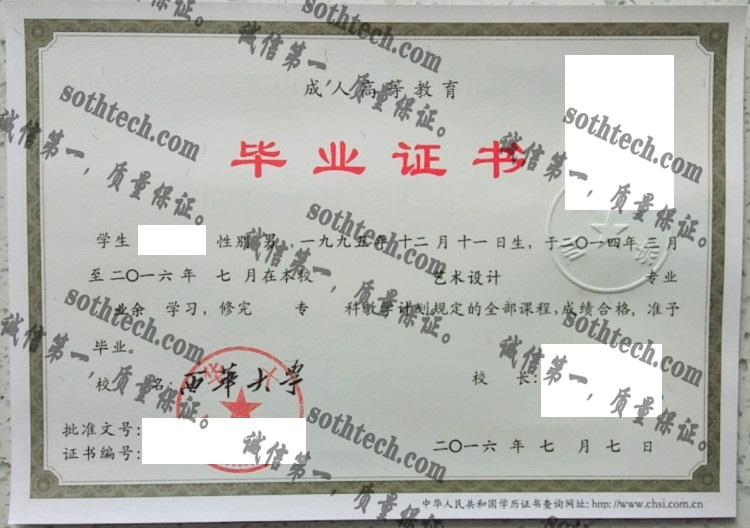 成人高等教育
毕业证书
学生 性别 男，一九九五年 十二月 十一日生，于二〇一四年 三月
至二〇一六年 七 月在本校 艺术设计 专业
业余 学习，修完 专 科教学计划规定的全部课程，成绩合格，准予
毕业。
校 名：西华大学 校 长：
批准文号：
证书编号：
二〇一六 年 七 月 七 日
中华人民共和国学历证书查询网址: http://www.chsi.com.cn
sothtech.com
诚信第一，质量保证。
sothtech.com
诚信第一，质量保证。
sothtech.com
诚信第一，质量保证。
sothtech.com
诚信第一，质量保证。
sothtech.com
诚信第一，质量保证。
sothtech.com
诚信第一，质量保证。
sothtech.com
诚信第一，质量保证。